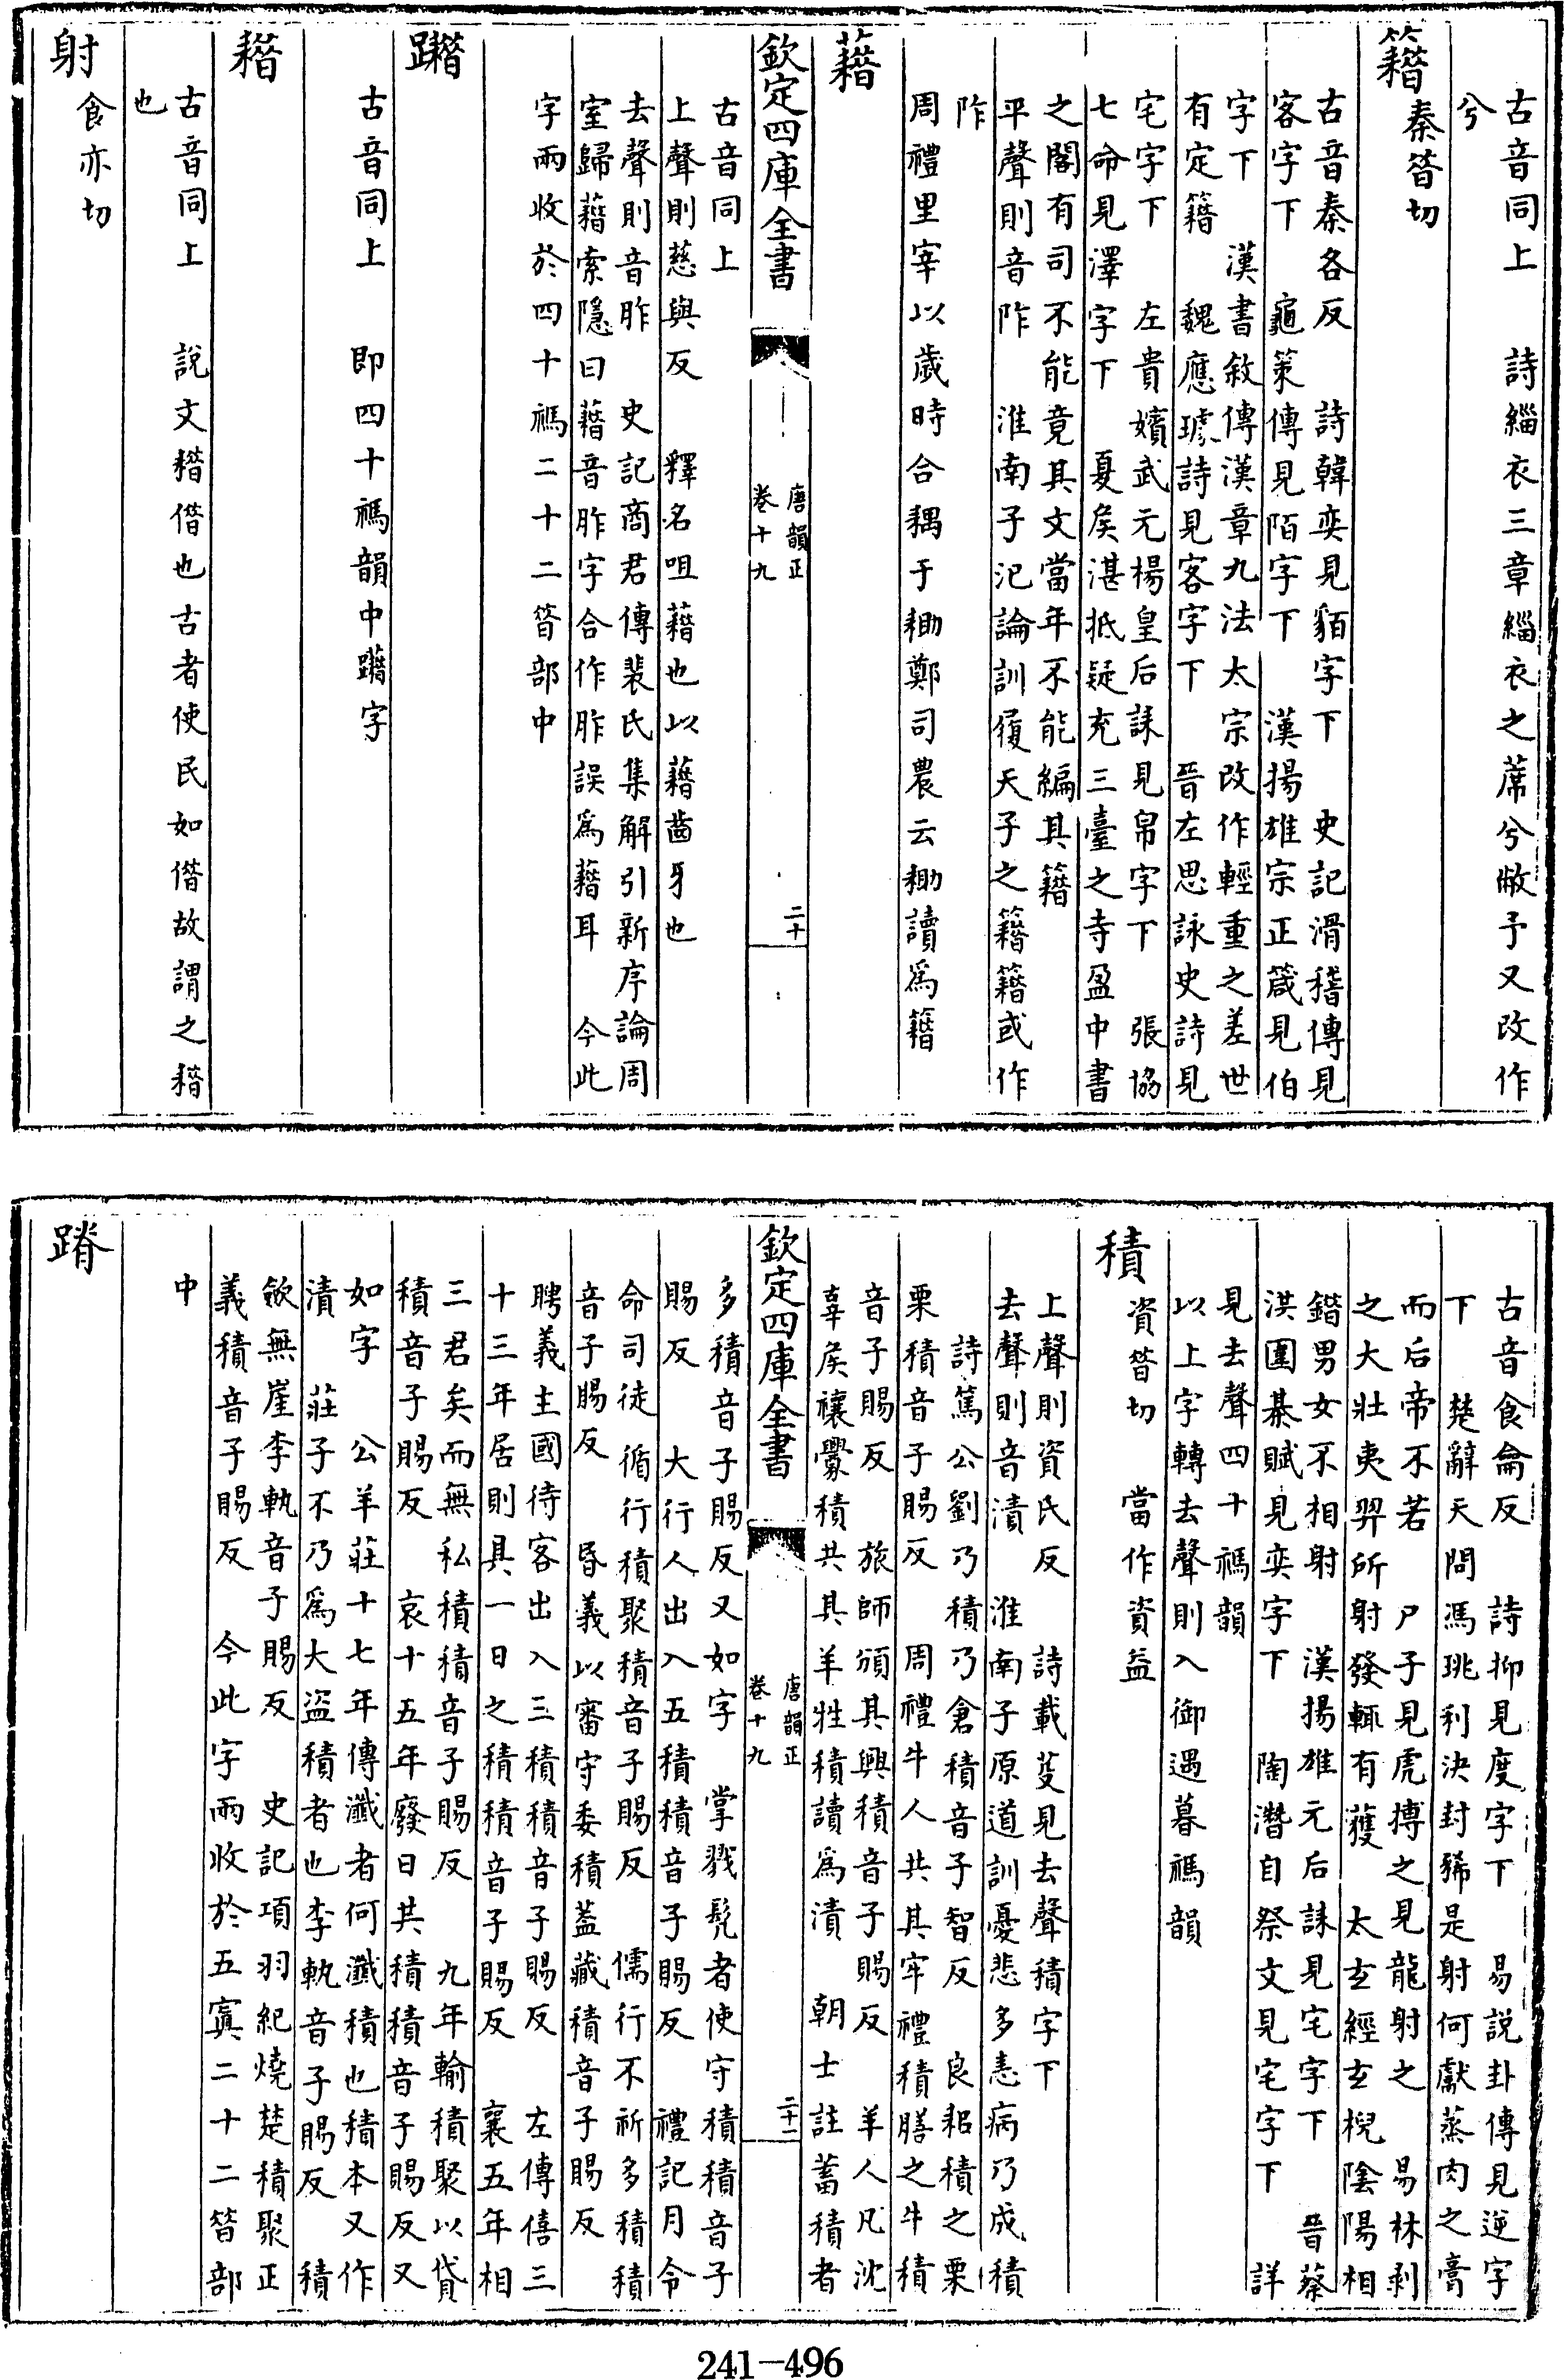 古音同上　詩緇衣三章緇衣之蓆兮敝予又改作
兮
籍秦昝切
古音秦各反　詩韓奕見貊字下　史記滑稽傳見
客字下　龜策傳見陌字下　漢揚雄宗正箴見伯
字下　漢書敘傳漢章九法太宗改作輕重之差世
有定籍　魏應璩詩見客字下　晉左思詠史詩見
宅字下　左貴嬪武元楊皇后誄見帛字下　張協
七命見澤字下　夏侯湛抵疑充三臺之寺盈中書
之閣有司不能竟其文當年不能編其籍
平聲則音阼　淮南子氾論訓履天子之籍籍或作
阼
周禮里宰以歲時合耦于耡鄭司農云耡讀為籍
藉
欽定四庫全書　唐韻正卷十九　二十
古音同上
上聲則慈與反　釋名咀藉也以藉齒牙也
去聲則音胙　史記商君傳裴氏集解引新序論周
室歸藉索隱曰藉音胙字合作胙誤為藉耳　今此
字兩收於四十禡二十二昝部中
躤
古音同上　即四十禡韻中躤字
耤
古音同上　說文耤借也古者使民如借故謂之耤
也
射食亦切
古音食侖反　詩抑見度字下　易說卦傳見逆字
下　楚辭天問馮珧利決封豨是射何獻蒸肉之膏
而后帝不若　尸子見虎搏之見龍射之　易林剥
之大壯夷羿所射發輒有獲　太玄經玄棿陰陽相
錯男女不相射　漢揚雄元后誄見宅字下　晉蔡
洪圍棊賦見奕字下　陶潛自祭文見宅字下　詳
見去聲四十禡韻
以上字轉去聲則入御遇暮禡韻
積資昝切　當作資益
上聲則資氏反　詩載芟見去聲積字下
去聲則音漬　淮南子原道訓憂悲多恚病乃成積
詩篤公劉乃積乃倉積音子智反　良耜積之栗
栗積音子賜反　周禮牛人共其牢禮積膳之牛積
音子賜反　旅師頒其興積音子賜反　羊人凡沈
辜侯禳釁積共其羊牲積讀為漬　朝士註蓄積者
欽定四庫全書　唐韻正卷十九　二十一
多積音子賜反又如字　掌戮髡者使守積積音子
賜反　大行人出入五積積音子賜反　禮記月令
命司徒循行積聚積音子賜反　儒行不祈多積積
音子賜反　昏義以審守委積蓋藏積音子賜反
聘義主國待客出入三積積音子賜反　左傳僖三
十三年居則具一日之積積音子賜反　襄五年相
三君矣而無私積積音子賜反　九年輸積聚以貸
積音子賜反　哀十五年廢日共積積音子賜反又
如字　公羊莊十七年傳瀸者何瀸積也積本又作
漬　莊子不乃為大盜積者也李軌音子賜反　積
斂無崖李軌音子賜反　史記項羽紀燒楚積聚正
義積音子賜反　今此字兩收於五寘二十二昝部
中
蹐
241-496